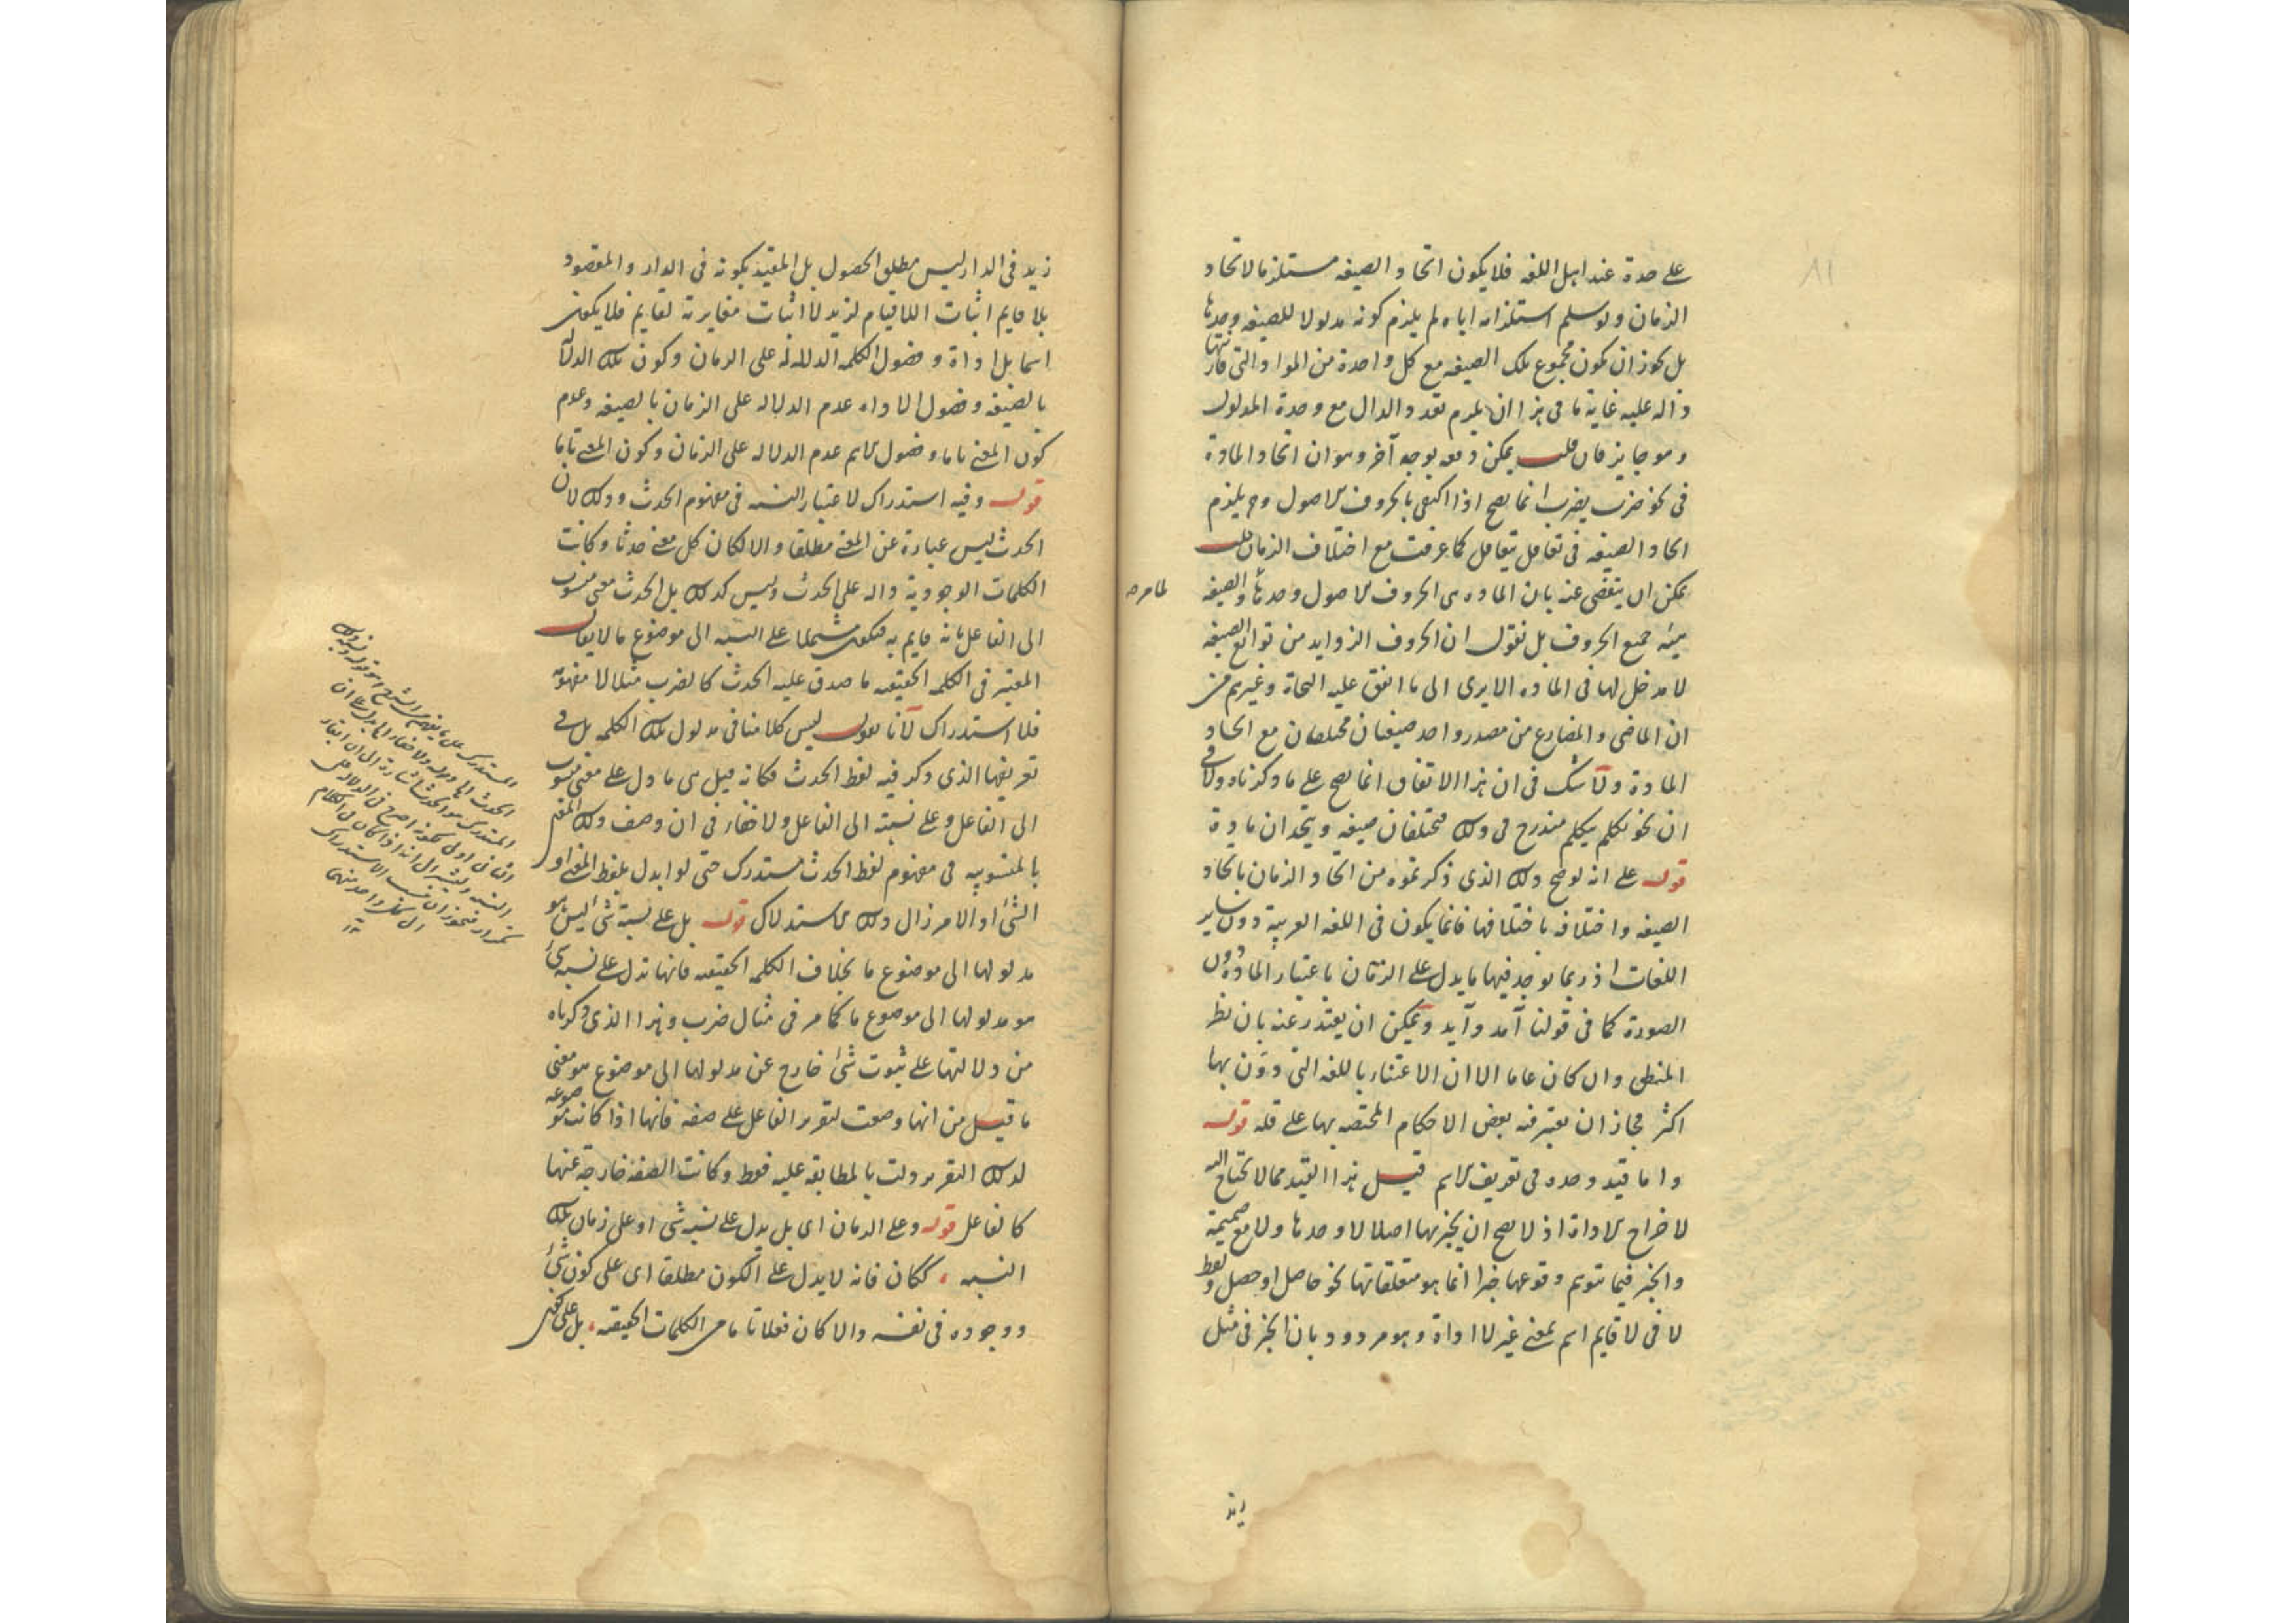 على حدة عند اهل اللغه فلا يكون اتحاد الصيغه مستلزما لاتحاد
الزمان ولو سلم استلزامه اياه لم يلزم كونه مدلولا للصيغه وحدها
بل يجوز ان يكون مجموع تلك الصيغه مع كل واحدة من المواد التى قارنتها
دالة عليه غاية ما فى هذا ان يلزم تعدد الدال مع وحدة المدلول
وهو جايز فان قلت يمكن دفعه بوجه آخر وهو ان اتحاد المادة
فى نحو ضرب يضرب انما يصح اذا اكتفى بالحروف الاصول وح يلزم
اتحاد الصيغه فى تقابل يتقابل كما عرفت مع اختلاف الزمان قلت
يمكن ان يتفصى عنه بان الماده هى الحروف الاصول وحدها والصيغه
هيئة جميع الحروف بل نقول ان الحروف الزوايد من توابع الصيغه
لا مدخل لها فى الماده الا يرى الى ما اتفق عليه النحاة وغيرهم من
ان الماضى والمضارع من مصدر واحد صيغتان مختلفتان مع اتحاد
المادة ولا شك فى ان هذا الاتفاق انما يصح على ما ذكرناه ولا فى
ان نحو تكلم يتكلم مندرج فى ذلك فتختلفان صيغه ويتحدان مادة
قوله على انه لو صح ذلك الذى ذكرتموه من اتحاد الزمان باتحاد
الصيغه واختلافه باختلافها فانما يكون فى اللغه العربية دون ساير
اللغات اذ ربما يوجد فيها ما يدل على الزمان باعتبار الماده دون
الصورة كما فى قولنا آمد وآيد ويمكن ان يعتذر عنه بان نظر
المنطقى وان كان عاما الا ان الاعتناء باللغه التى دون بها
اكثر فجاز ان يعتبر فيه بعض الاحكام المختصه بها على قله قوله
واما قيد وحده فى تعريف الاسم قيل هذا القيد مما لا يحتاج اليه
لاخراج الاداة اذ لا يصح ان يخبر بها اصلا لا وحدها ولا مع ضميمة
والخبر فيما يتوهم وقوعها خبرا انما هو متعلقاتها نحو حاصل او حصل ولفظ
لا فى لا قايم اسم بمعنى غير لا اداة وهو مردود بان الخبر فى مثل
زيد
زيد فى الدار ليس مطلق الحصول بل المقيد بكونه فى الدار والمقصود
بلا قايم اثبات اللاقيام لزيد لا اثبات مغايرته لقايم فلا يكون
اسما بل اداة وفصول الكلمه الدلالة على الزمان وكون تلك الدلالة
بالصيغه وفصول الاداه عدم الدلاله على الزمان بالصيغه وعدم
كون المعنى تاما وفصول الاسم عدم الدلاله على الزمان وكون المعنى تاما
قوله وفيه استدراك لاعتبار النسبه فى مفهوم الحدث وذلك لان
الحدث ليس عبارة عن المعنى مطلقا والا لكان كل معنى حدثا وكانت
الكلمات الوجودية داله على الحدث وليس كذلك بل الحدث معنى منسوب
الى الفاعل بانه قايم به فيكون مشتملا على النسبه الى موضوع ما لا يقال
المعتبر فى الكلمه الحقيقيه ما صدق عليه الحدث كالضرب مثلا لا مفهومه
فلا استدراك لانا نقول ليس كلامنا فى مدلول تلك الكلمه بل فى
تعريفها الذى ذكر فيه لفظ الحدث فكانه قيل هى ما دل على معنى منسوب
الى الفاعل وعلى نسبته الى الفاعل ولا خفاء فى ان وصف ذلك المعنى
بالمنسوبيه فى مفهوم لفظ الحدث مستدرك حتى لو ابدل بلفظ المعنى او
الشئ او الامر زال ذلك الاستدراك قوله بل على نسبة شئ ليس هو
مدلولها الى موضوع ما بخلاف الكلمه الحقيقيه فانها تدل على نسبة شئ
هو مدلولها الى موضوع ما كما مر فى مثال ضرب وهذا الذى ذكرناه
من دلالتها على ثبوت شئ خارج عن مدلولها الى موضوع هو معنى
ما قيل من انها وضعت لتقرير الفاعل على صفه فانها اذا كانت موضوعه
لذلك التقرير دلت بالمطابقه عليه فقط وكانت الصفة خارجة عنها
كالفاعل قوله وعلى الزمان اى بل يدل على نسبه شئ او على زمان تلك
النسبه ككان فانه لا يدل على الكون مطلقا اى على كون شئ
ووجوده فى نفسه والا كان فعلا تاما من الكلمات الحقيقه بل على كون